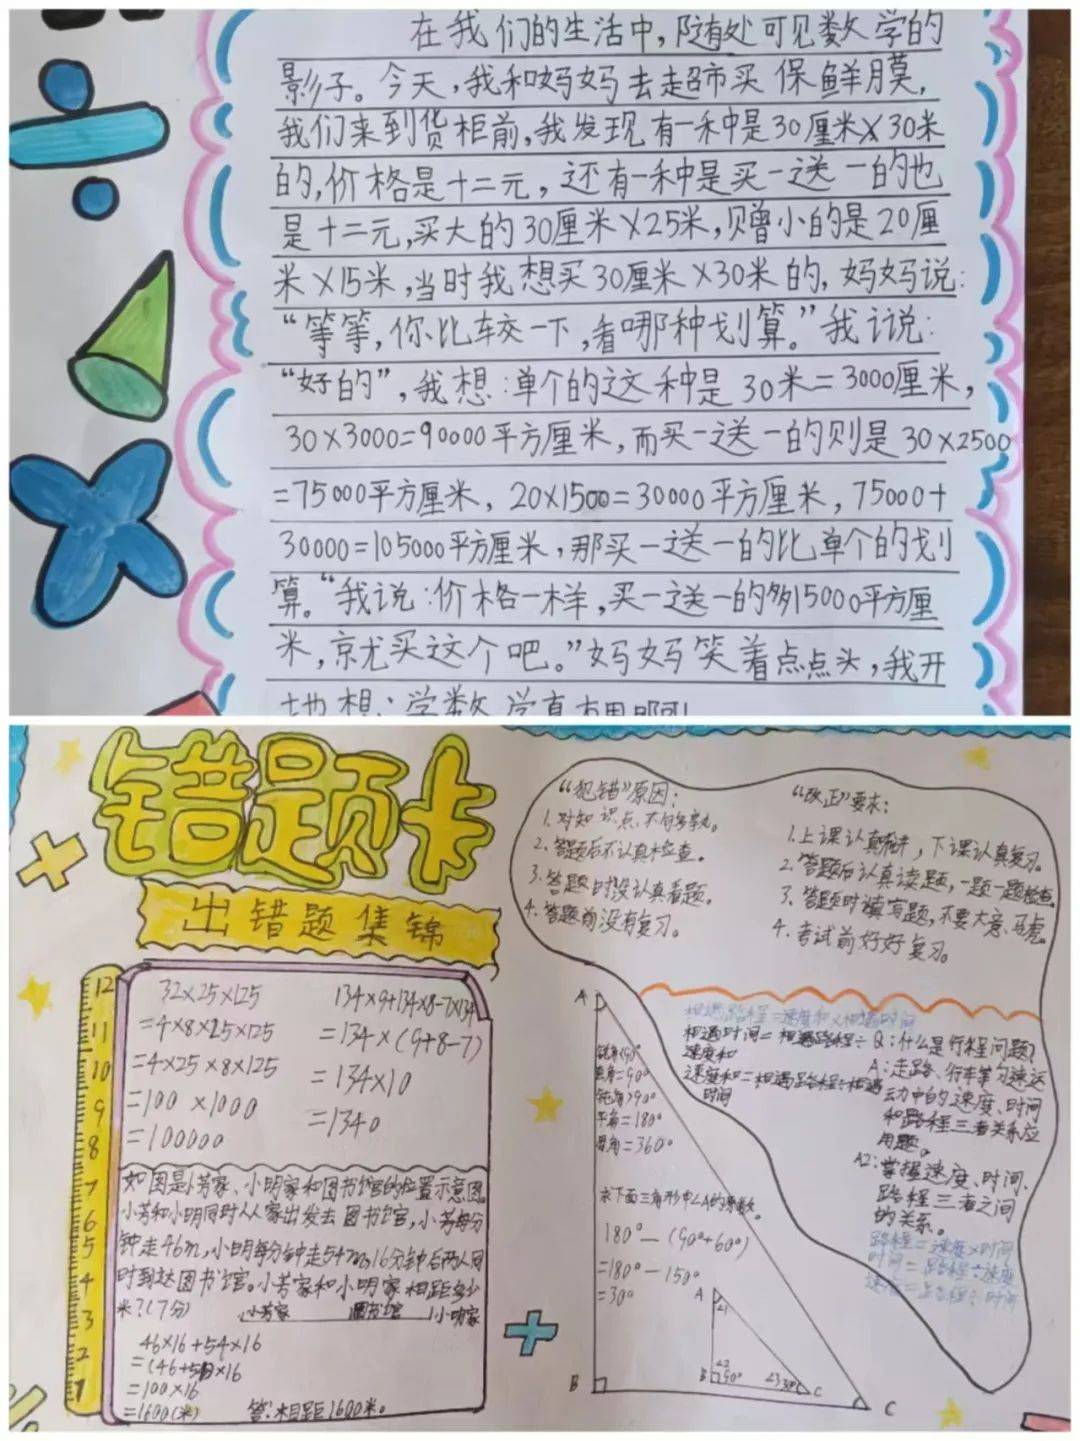 在我们的生活中，随处可见数学的
影子。今天，我和妈妈去超市买保鲜膜，
我们来到货柜前，我发现有一种是30厘米X30米
的，价格是十二元，还有一种是买一送一的也
是十二元，买大的30厘米X25米，赠小的是20厘
米X15米，当时我想买30厘米X30米的，妈妈说：
“等等，你比较一下，看哪种划算。”我说：
“好的”，我想：单个的这种是30米=3000厘米，
30×3000=90000平方厘米，而买一送一的则是30×2500
=75000平方厘米，20×1500=30000平方厘米，75000+
30000=105000平方厘米，那买一送一的比单个的划
算。“我说：价格一样，买一送一的多15000平方厘
米，就买这个吧。”妈妈笑着点点头，我开
错题卡
出错题集锦
12
11
10
9
8
7
6
5
4
3
2
1
32×25×125
=4×8×25×125
=4×25×8×125
=100×1000
=100000
134×9+134×8-7×134
=134×(9+8-7)
=134×10
=1340
如图是小芳家、小明家和图书馆的位置示意图。
小芳和小明同时从家出发去图书馆，小芳每分
钟走46m，小明每分钟走54m，16分钟后两人同
时到达图书馆。小芳家和小明家相距多少
米？(7分)
小芳家 图书馆 小明家
46×16+54×16
=(46+54)×16
=100×16
=1600(米)
答：相距1600米。
“犯错”原因：
1.对知识点、不够
2.答题后不认真检查。
3.答题时没认真看题。
4.答题前没有复习。
“改正”要求：
1.上课认真听讲，下课认真复习。
2.答题后认真读题，一题一题检查。
3.答题时填写题，不要大意、马虎。
4.考试前好好复习。
相遇路程=速度和×相遇时间
相遇时间=相遇路程÷
速度和
速度和=相遇路程÷相遇
时间
Q：什么是行程问题？
A：走路、行车等匀速运
动中的速度、时间
和路程三者关系应
用题。
A2：掌握速度、时间、
路程三者之间
的关系。
路程=速度×时间
时间=路程÷速度
速度=路程÷时间
A
锐角<90°
直角=90°
钝角>90°
平角=180°
周角=360°
求下面三角形中∠A的度数。
180°-(90°+60°)
=180°-150°
=30°
A
∠1
∠2
B
90°
C
B
C